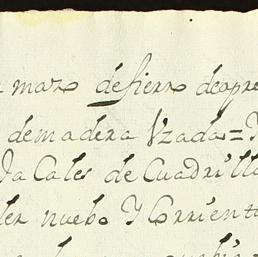 mazo de fierro deapre
de madera Vzada = Y
Ja Cales de Cuadrilla
ler nuebo Y Corrient